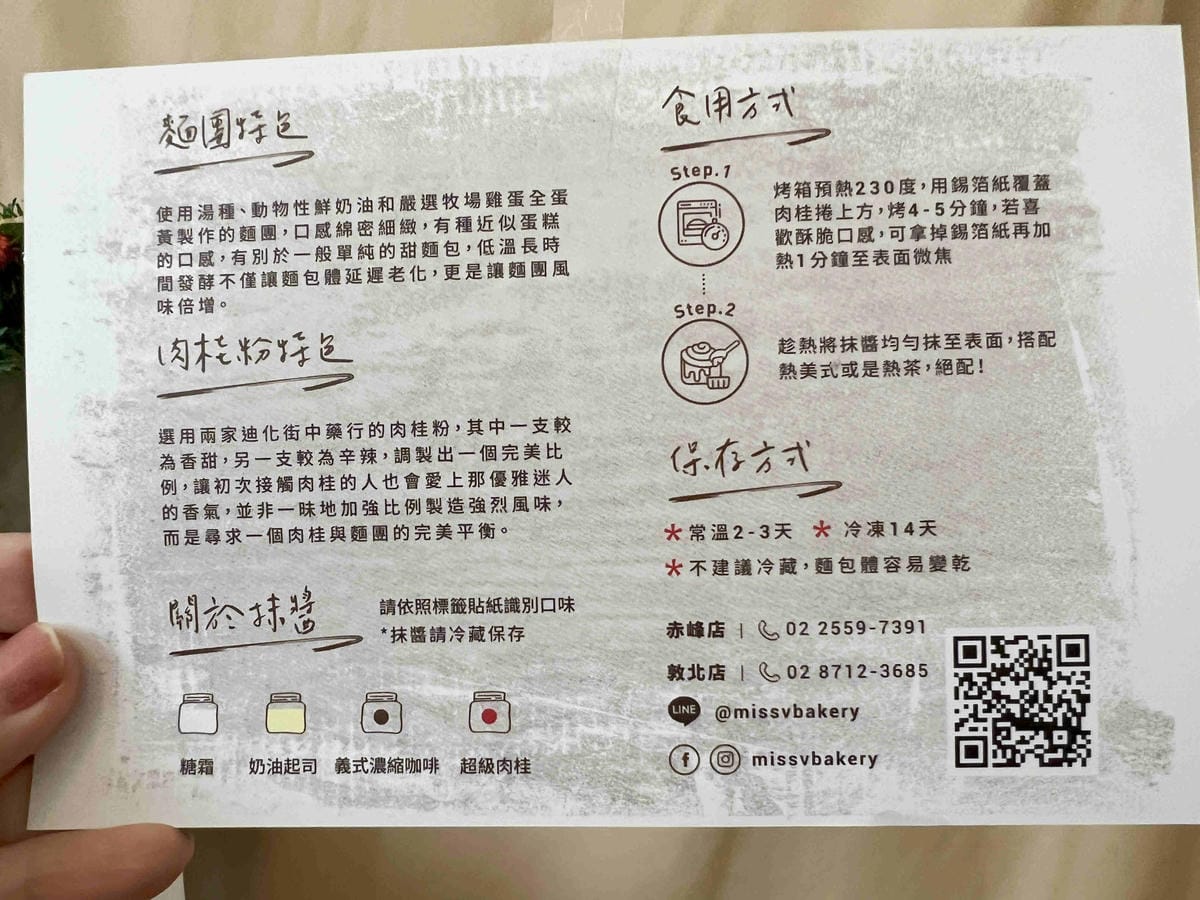 麵團特色
使用湯種、動物性鮮奶油和嚴選牧場雞蛋全蛋
黃製作的麵團，口感綿密細緻，有種近似蛋糕
的口感，有別於一般單純的甜麵包，低溫長時
間發酵不僅讓麵包體延遲老化，更是讓麵團風
味倍增。
肉桂粉特色
選用兩家迪化街中藥行的肉桂粉，其中一支較
為香甜，另一支較為辛辣，調製出一個完美比
例，讓初次接觸肉桂的人也會愛上那優雅迷人
的香氣，並非一昧地加強比例製造強烈風味，
而是尋求一個肉桂與麵團的完美平衡。
關於抹醬
請依照標籤貼紙識別口味
*抹醬請冷藏保存
糖霜 奶油起司 義式濃縮咖啡 超級肉桂
食用方式
Step.1
烤箱預熱230度，用錫箔紙覆蓋
肉桂捲上方，烤4-5分鐘，若喜
歡酥脆口感，可拿掉錫箔紙再加
熱1分鐘至表面微焦
Step.2
趁熱將抹醬均勻抹至表面，搭配
熱美式或是熱茶，絕配！
保存方式
*常溫2-3天 *冷凍14天
*不建議冷藏，麵包體容易變乾
赤峰店 | 02 2559-7391
敦北店 | 02 8712-3685
LINE @missvbakery
f missvbakery